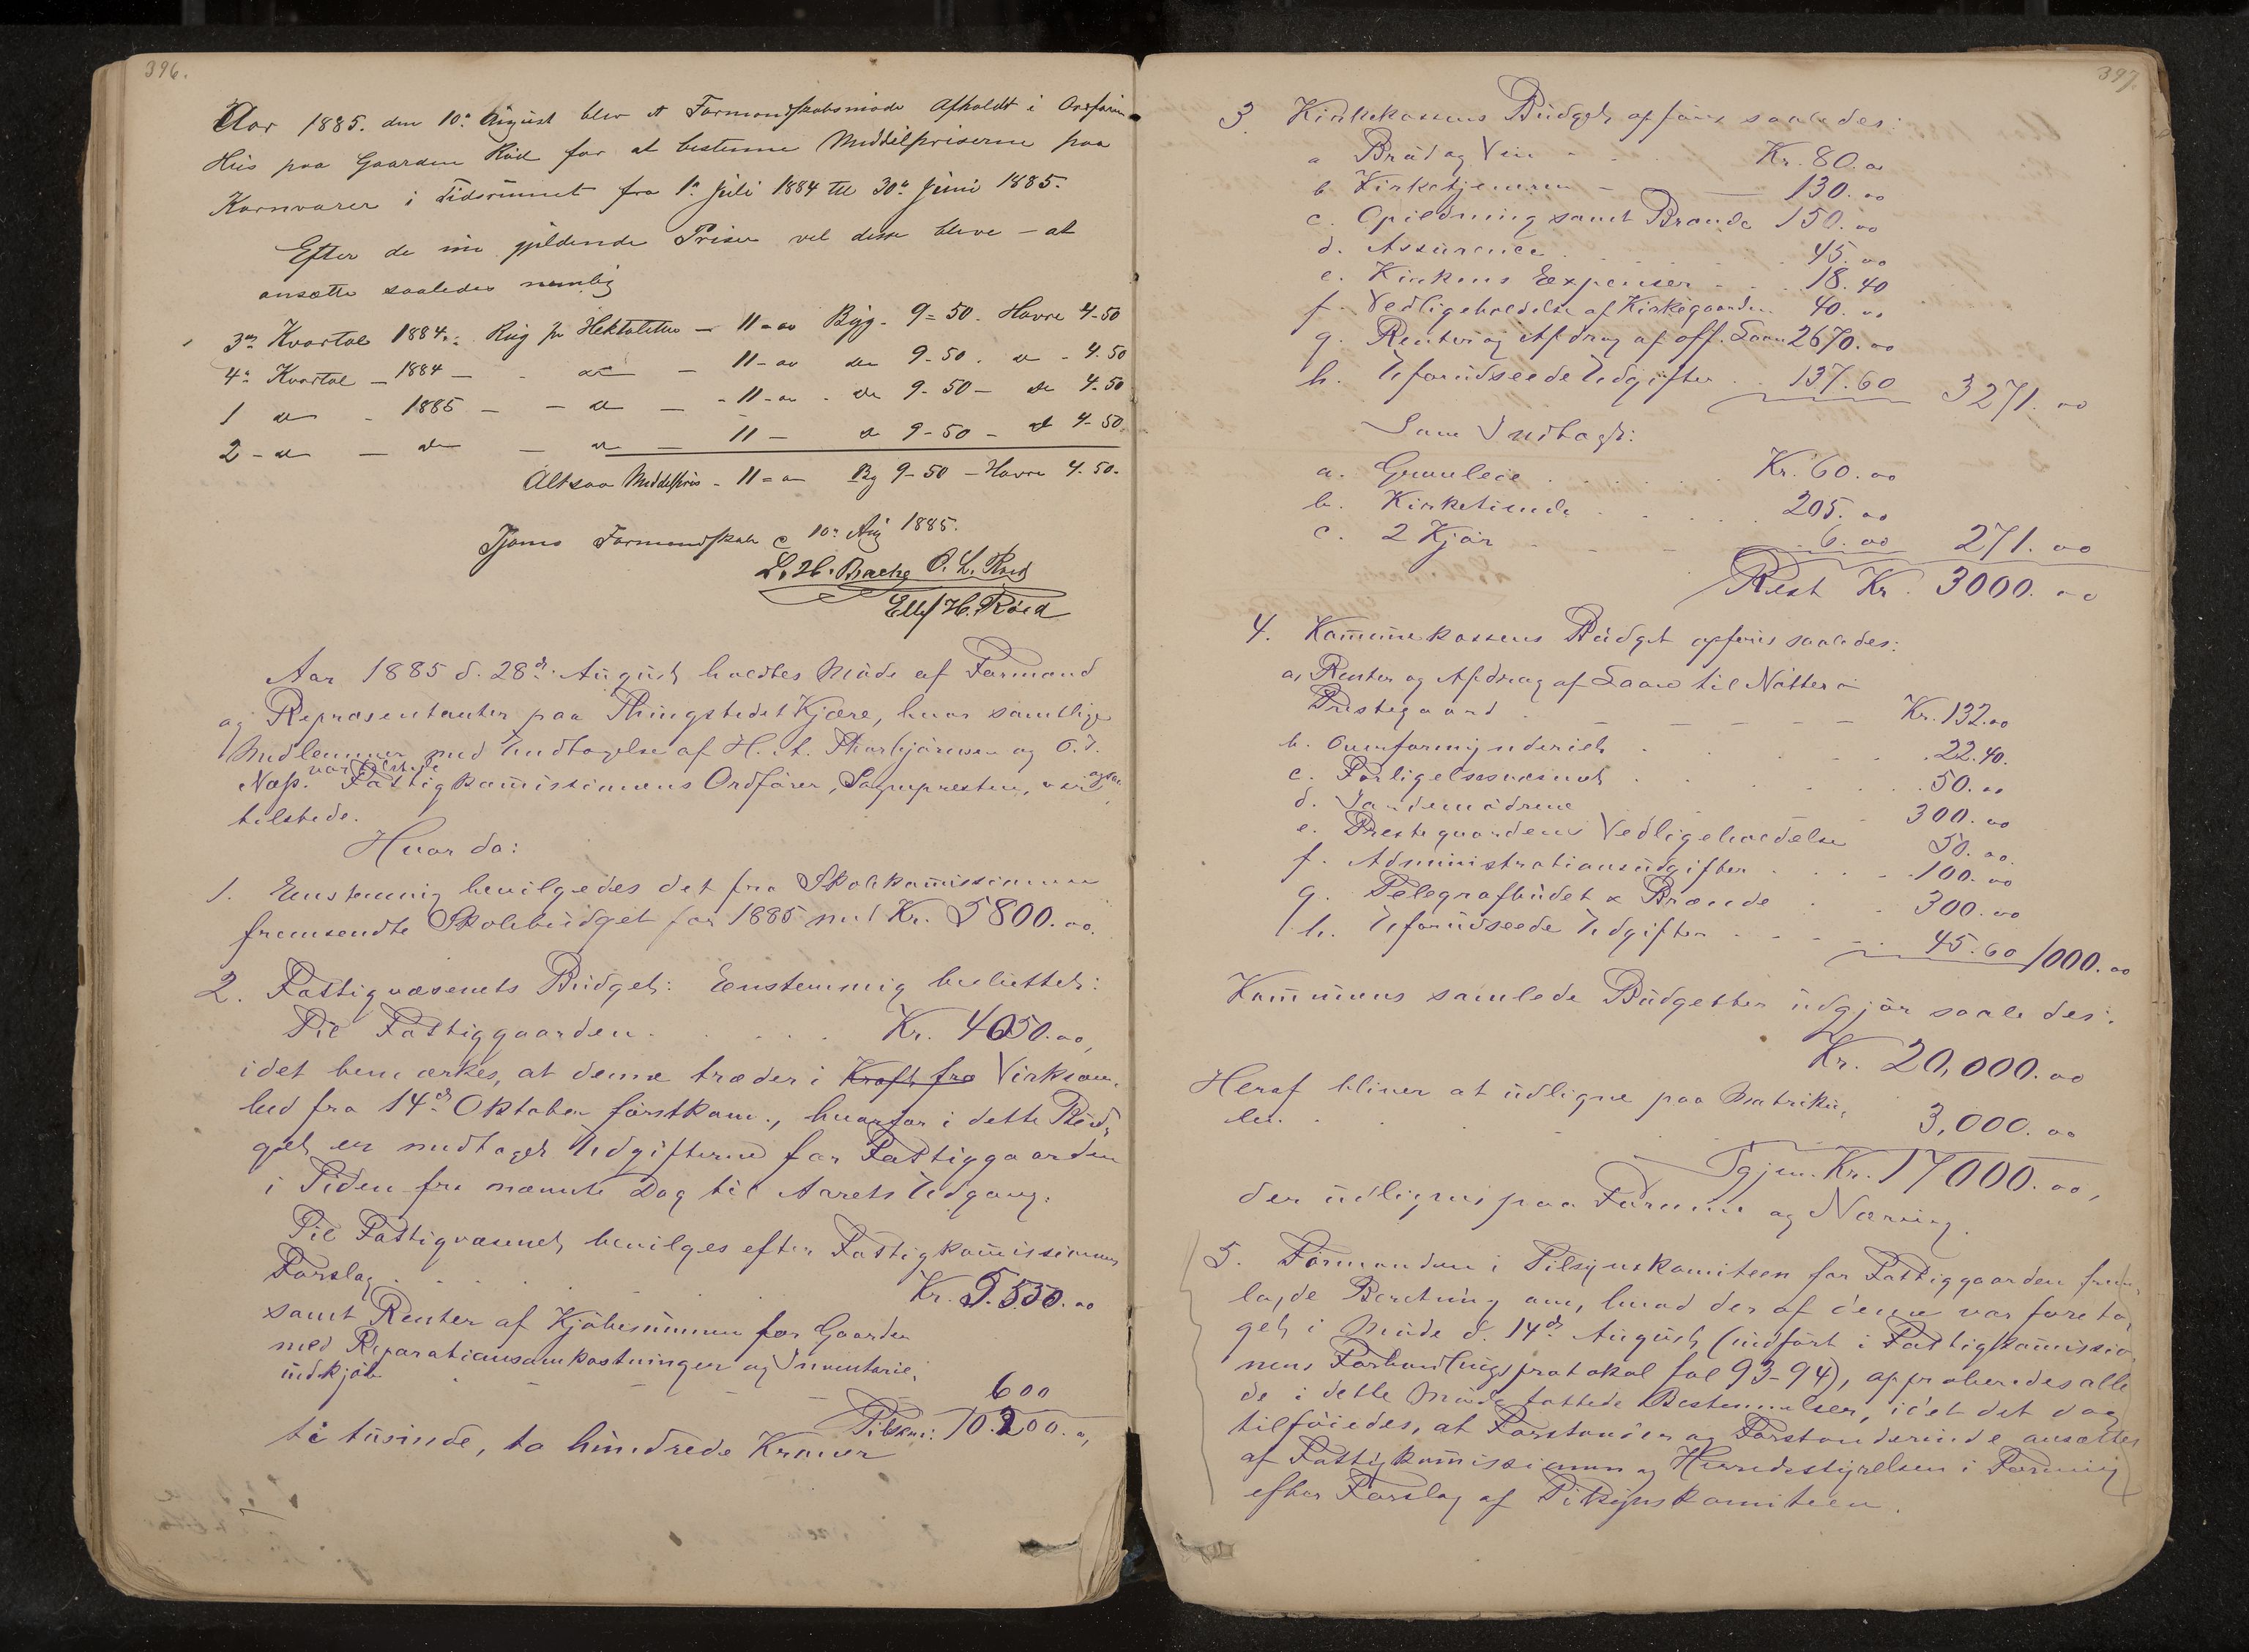 396.
Aar 1885. den 10de August blev et Formandskabsmøde afholdt i Ordførerens
Hus paa Gaarden Röd for at bestemme Middelpriserne paa
Kornvarer i Tidsrummet fra 1ste Juli 1884 til 30te Juni 1885.
Efter de nu gjeldende Priser vel disse bleve – at
ansætte saaledes nemlig
3die Kvartal 1884: Rug pr Hektoliter – 11 = 00 Byg. 9 = 50. Havre 4-50
4de Kvartal – 1884 – do – 11-00 do 9-50. do - 4.50
1 do - 1885 – - do – - 11-00 - do 9-50 – do 4-50
2 - do – do – do – 11 – do 9-50 – do 4-50.
Altsaa Middelpris - 11 = 00 Byg 9-50 – Havre 4.50.
Tjømø Formandskab 10de Aug 1885.
L. H. Bache O. L. Røed
Ellef H. Röed
Aar 1885 d. 28de August holdtes Møde af Formænd
og Repræsentanter paa Thingstedet Kjære, hvor samtlige
Medlemmer med Undtagelse af H. A. Thorbjørnsen og O. J.
Næss. var tilstede Fattigkommissionens Ordfører, Sognepresten, var ogsaa
tilstede.
Hvor da:
1. Enstemmig bevilgedes det fra Skolekommissionen
fremsendte Skolebudget for 1885 med Kr. 5800.00.
2. Fattigvæsenets Budget: Eenstemmig besluttet:
Til Fattiggaarden . . . . . Kr. 4050.00,
idet bemærkes, at denne træder i Kraft fra Virksom-
hed fra 14de Oktober førstkom., hvorfor i dette Bud-
get er medtaget Udgifterne for Fattiggaarden
i Tiden fra nævnte Dag til Aarets Udgang.
Til Fattigvæsenet bevilges efter Fattigkommissionens
Forslag . . . . . Kr. 5.550.00
samt Renter af Kjøbesummen for Gaarden
med Reparationsomkostninger og Inventarie-
indkjøb - - - - - 600
Tilskm: 10.200.00,
ti tusinde, to hundrede Kroner
397.
3. Kirkekassens Budget opføres saaledes:
a Brød og Vin - - . Kr. 80.00
b. Kirketjeneren - – 130.00
c. Opildning samt Brænde 150.00
d. Assurance . . . . 45.00
e. Kirkens Expenser . . . 18.40
f. Vedligeholdelse af Kirkegaarden 40.00
g. Renter og Afdrag af off. Laan 2670.00
h. Uforudseede Udgifter . . 137.60 3271.00
Som Indtægt:
a. Grunleie . . . . . . Kr. 60.00
b. Kirketiende . . . . . 205.00
c. 2 Kjør - - - . 6.00 271.00
Rest Kr. 3000.00
4. Kommunekassens Budget opføres saaledes:
a, Renter og Afdrag af Laan til Nøtterø
Prestegaard . – – – – – Kr. 132.00
b. Overformynderiet . . . . 22.40.
c. Forligelsesvæsenet . . . . . 50.00
d. Jordemødrene - 300.00
e. Prestegaardens Vedligeholdelse 50.00.
f. Administrationsudgifter . . . . 100.00
g. Telegrafbudet & Brænde . . 300.00
h. Uforudseede Udgifter . - - - . 45.60 1000.00
Kommunens samlede Budgetter udgjør saaledes:
Kr. 20,000.00
Heraf bliver at udligne paa Matriku-
len. . . . . 3,000.00
Igjen. Kr. 17000.00,
der udlignes paa Formue og Næring.
5. Formanden i Tilsynskomiteen for Fattiggaarden frem-
lagde Beretning om, hvad der af denne var foreta-
get i Møde d. 14de August (indført i Fattigkommissio-
nens Forhandlingsprotokol fol 93-94), approberedes alle
de i dette Møde fattede Bestemmelser, idet det dog
tilføiedes, at Forstander og Forstanderinde ansættes
af Fattigkommissionen og Herredsstyrelsen i Forening
efter Forslag af Tilsynskomiteen.